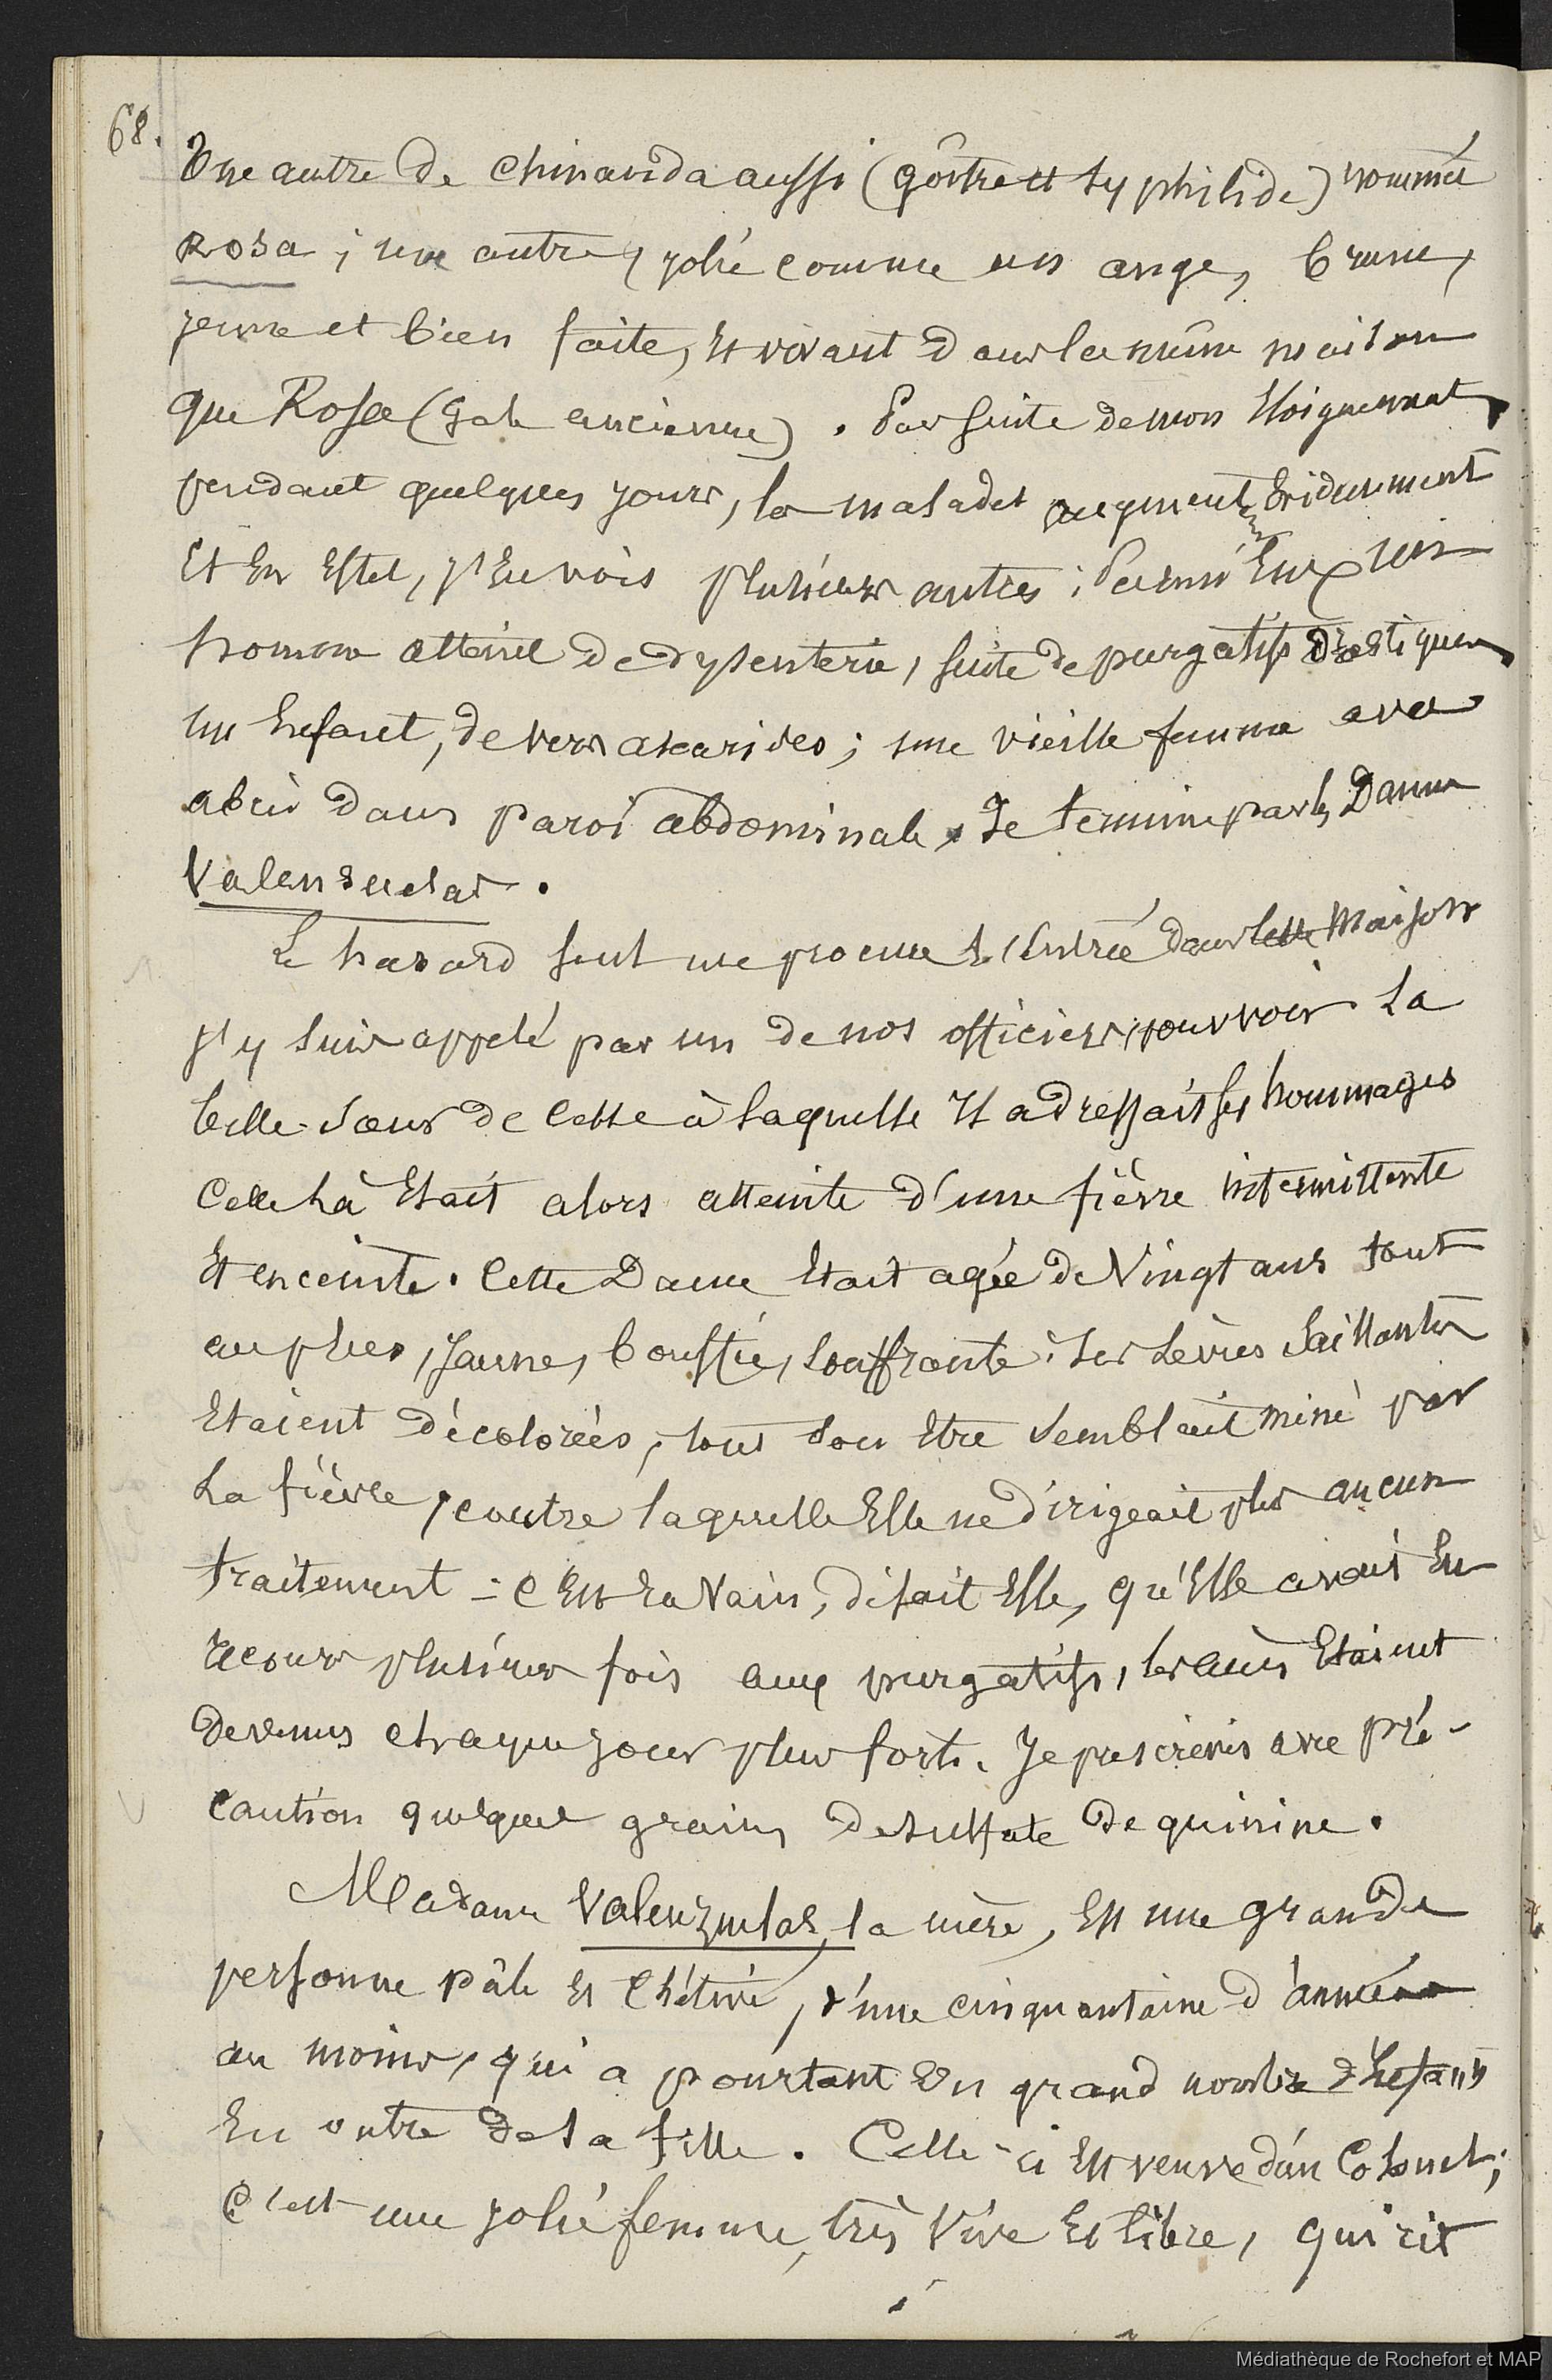 68.
Une autre de Chinanda aussi (goître et syphilide) nommée
Rosa ; une autre, jolie comme un ange, brune,
jeune et bien faite, et vivant dans la même maison
que Rosa (gale ancienne). Par suite de mon éloignement
pendant quelques jours, les malades augmentent évidemment
Et en effet, j'en vois plusieurs autres ; parmi eux un
homme atteint de dysenterie, suite de purgatifs drastiques
un enfant, de vers ascarides ; une vieille femme avec
abcès dans paroi abdominale, Je termine par les Dames
Valenzuelas.
Le hasard seul me procure l'entrée dans cette maison
j'y suis appelé par un de nos officiers, pour voir la
belle-sœur de celle à laquelle il adressait ses hommages
Celle là était alors atteinte d'une fièvre intermittente
et enceinte. Cette Dame était agée de vingt ans tout
au plus, jaune, bouffie, souffrante ; ses lèvres saillantes
étaient décolorées, tout son être semblait miné par
la fièvre, contre laquelle elle ne dirigeait plus aucun
traitement : c'est en vain, disait elle, qu'elle avait eu
recours plusieurs fois aux purgatifs, les accès étaient
devenus chaque jour plus forts. Je prescrivis avec pré-
caution quelques grains de sulfate de quinine.
Madame Valenzuelas, la mère, est une grande
personne pâle et chétive, d'une cinquantaine d'années
au moins, qui a pourtant un grand nombre d'enfants
en outre de sa fille. Celle-ci est veuve d'un Colonel ;
C'est une jolie femme, très vive et libre, qui rit
Médiathèque de Rochefort et MAP